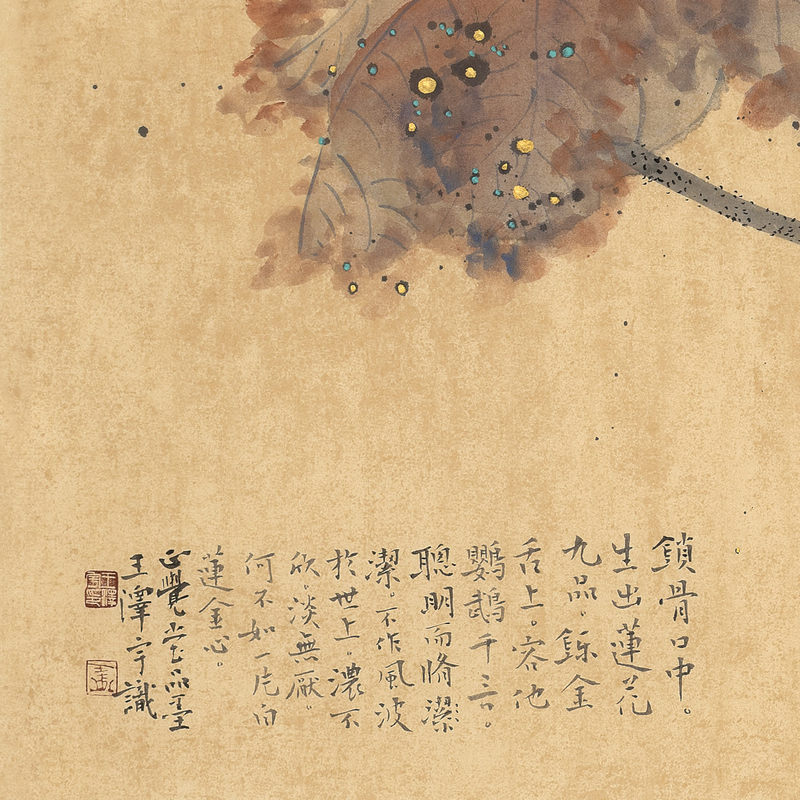 鎖骨口中。
生出蓮花
九品。鑠金
舌上。容他
鸚鵡千言。
聰明而脩潔
潔。不作風波
於世上。濃不
欣。淡無厭。
何不如一片白
蓮金心。
正覺堂品墨
王澤宇識